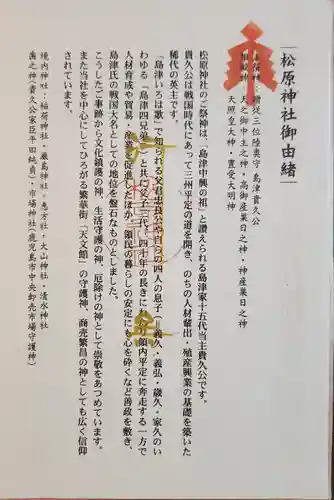 松原神社御由緒
主祭神：贈従三位陸奥守・島津貴久公
相殿神：天之御中主之神・高御産巣日之神・神産巣日之神
天照皇大神・豊受大明神
松原神社のご祭神は、「島津中興の祖」と讃えられる島津家十五代当主貴久公です。
貴久公は戦国時代にあって三州平定の道を開き、のちの人材輩出・殖産興業の基礎を築いた
稀代の英主です。
「島津いろは歌」で知られる父君忠良公や自らの四人の息子（義久・義弘・歳久・家久のい
わゆる「島津四兄弟」）と共に父子三代、四十年の長きにわたり領内平定に奔走する一方で
人材育成や貿易・産業を促進したほか、領民の暮らしの安定にも心を砕くなど善政を敷き、
島津氏の戦国大名としての地位を盤石なものとしました。
こうしたご事跡から文化護護の神、生活守護の神、厄除けの神として崇敬をあつめています。
また当社を中心にしてひろがる繁華街「天文館」の守護神、商売繁昌の神としても広く信仰
されています。
境内神社：稲荷神社・厳島神社・恵方社・大山神社・清水神社
漁之神（貴久公家臣平田純貞）・市場神社（鹿児島市中央卸売市場守護神）